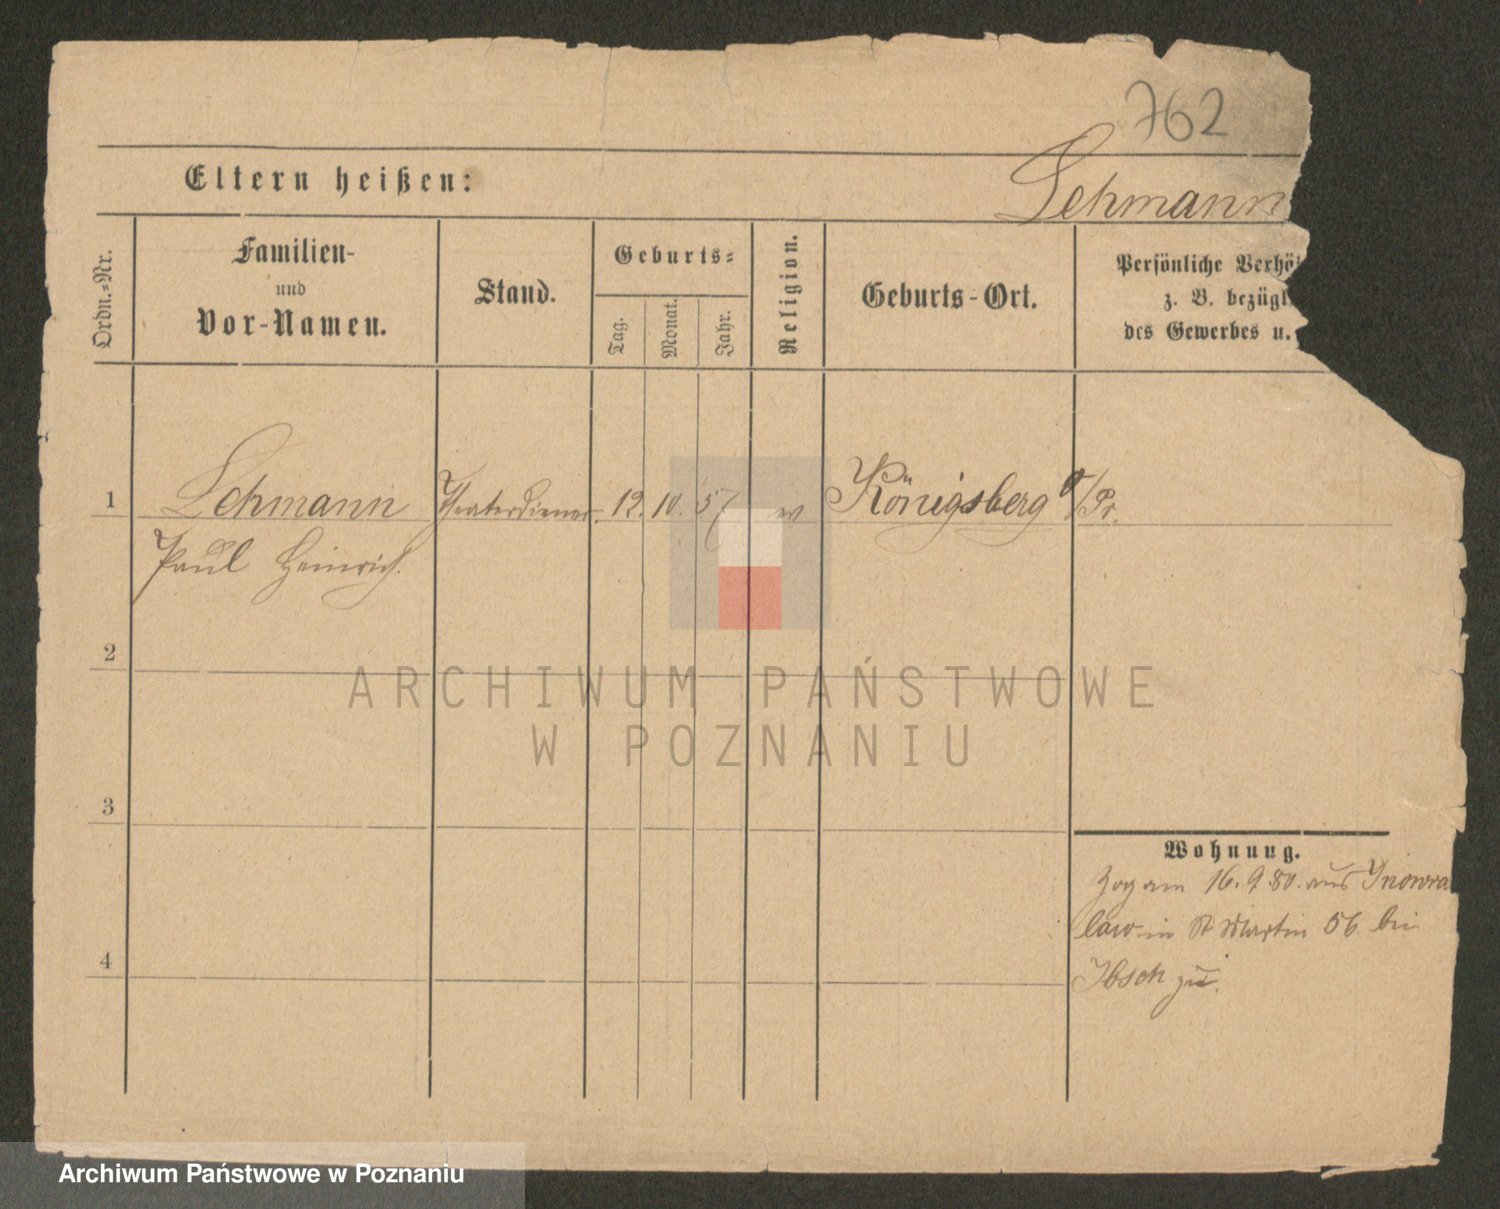 762
Eltern heißen:
Lehmann
Ordn.=Nr.
Familien-
und
Vor-Namen.
Stand.
Geburts=
Tag.
Monat.
Jahr.
Religion.
Geburts-Ort.
Persönliche Verhä
z. B. bezügl.
des Gewerbes u.
1 Lehmann Theaterdiener. 12. 10. 57 Königsberg o/Pr.
Paul Heinrich.
2
3
4
Wohnung.
Zog am 16.9.80. aus Inowra
law in St Martin 56 bei
zu.
ARCHIWUM PAŃSTWOWE
W POZNANIU
Archiwum Państwowe w Poznaniu